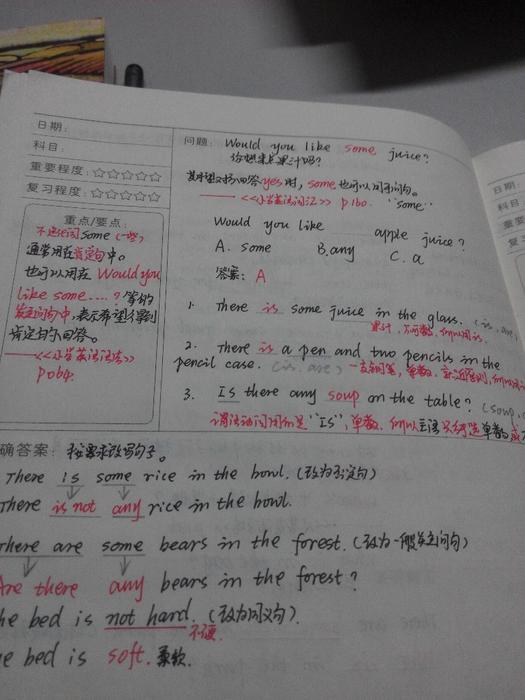 日期:
科目:
重要程度: ☆☆☆☆☆
复习程度: ☆☆☆☆☆
重点/要点:
不定代词some (一些)
通常用在肯定句中。
也可以用在 Would you
like some....? 等的
疑问句中,表示希望得到
肯定的回答。
——《小学英语语法》
P064.
问题: Would you like some juice?
你想来点果汁吗?
其希望对方回答yes时, some也可以用于问句。
——《小学英语词汇》 P160. "some"
Would you like apple juice?
A. some B. any C. a
答案: A
1. There is some juice in the glass. (is, are)
果汁,不可数,所以用is.
2. There is a pen and two pencils in the
pencil case. (is, are) 一支钢笔,单数,就近原则,所以用is
3. Is there any soup on the table? (soup,
谓语动词用的是"Is",单数,所以主语只能是单数
确答案: 按要求改写句子。
There is some rice in the bowl. (改为否定句)
There is not any rice in the bowl.
There are some bears in the forest. (改为一般疑问句)
Are there any bears in the forest?
he bed is not hard. (改为同义句).
不硬
e bed is soft. 柔软.
日期
科目
重要
复习